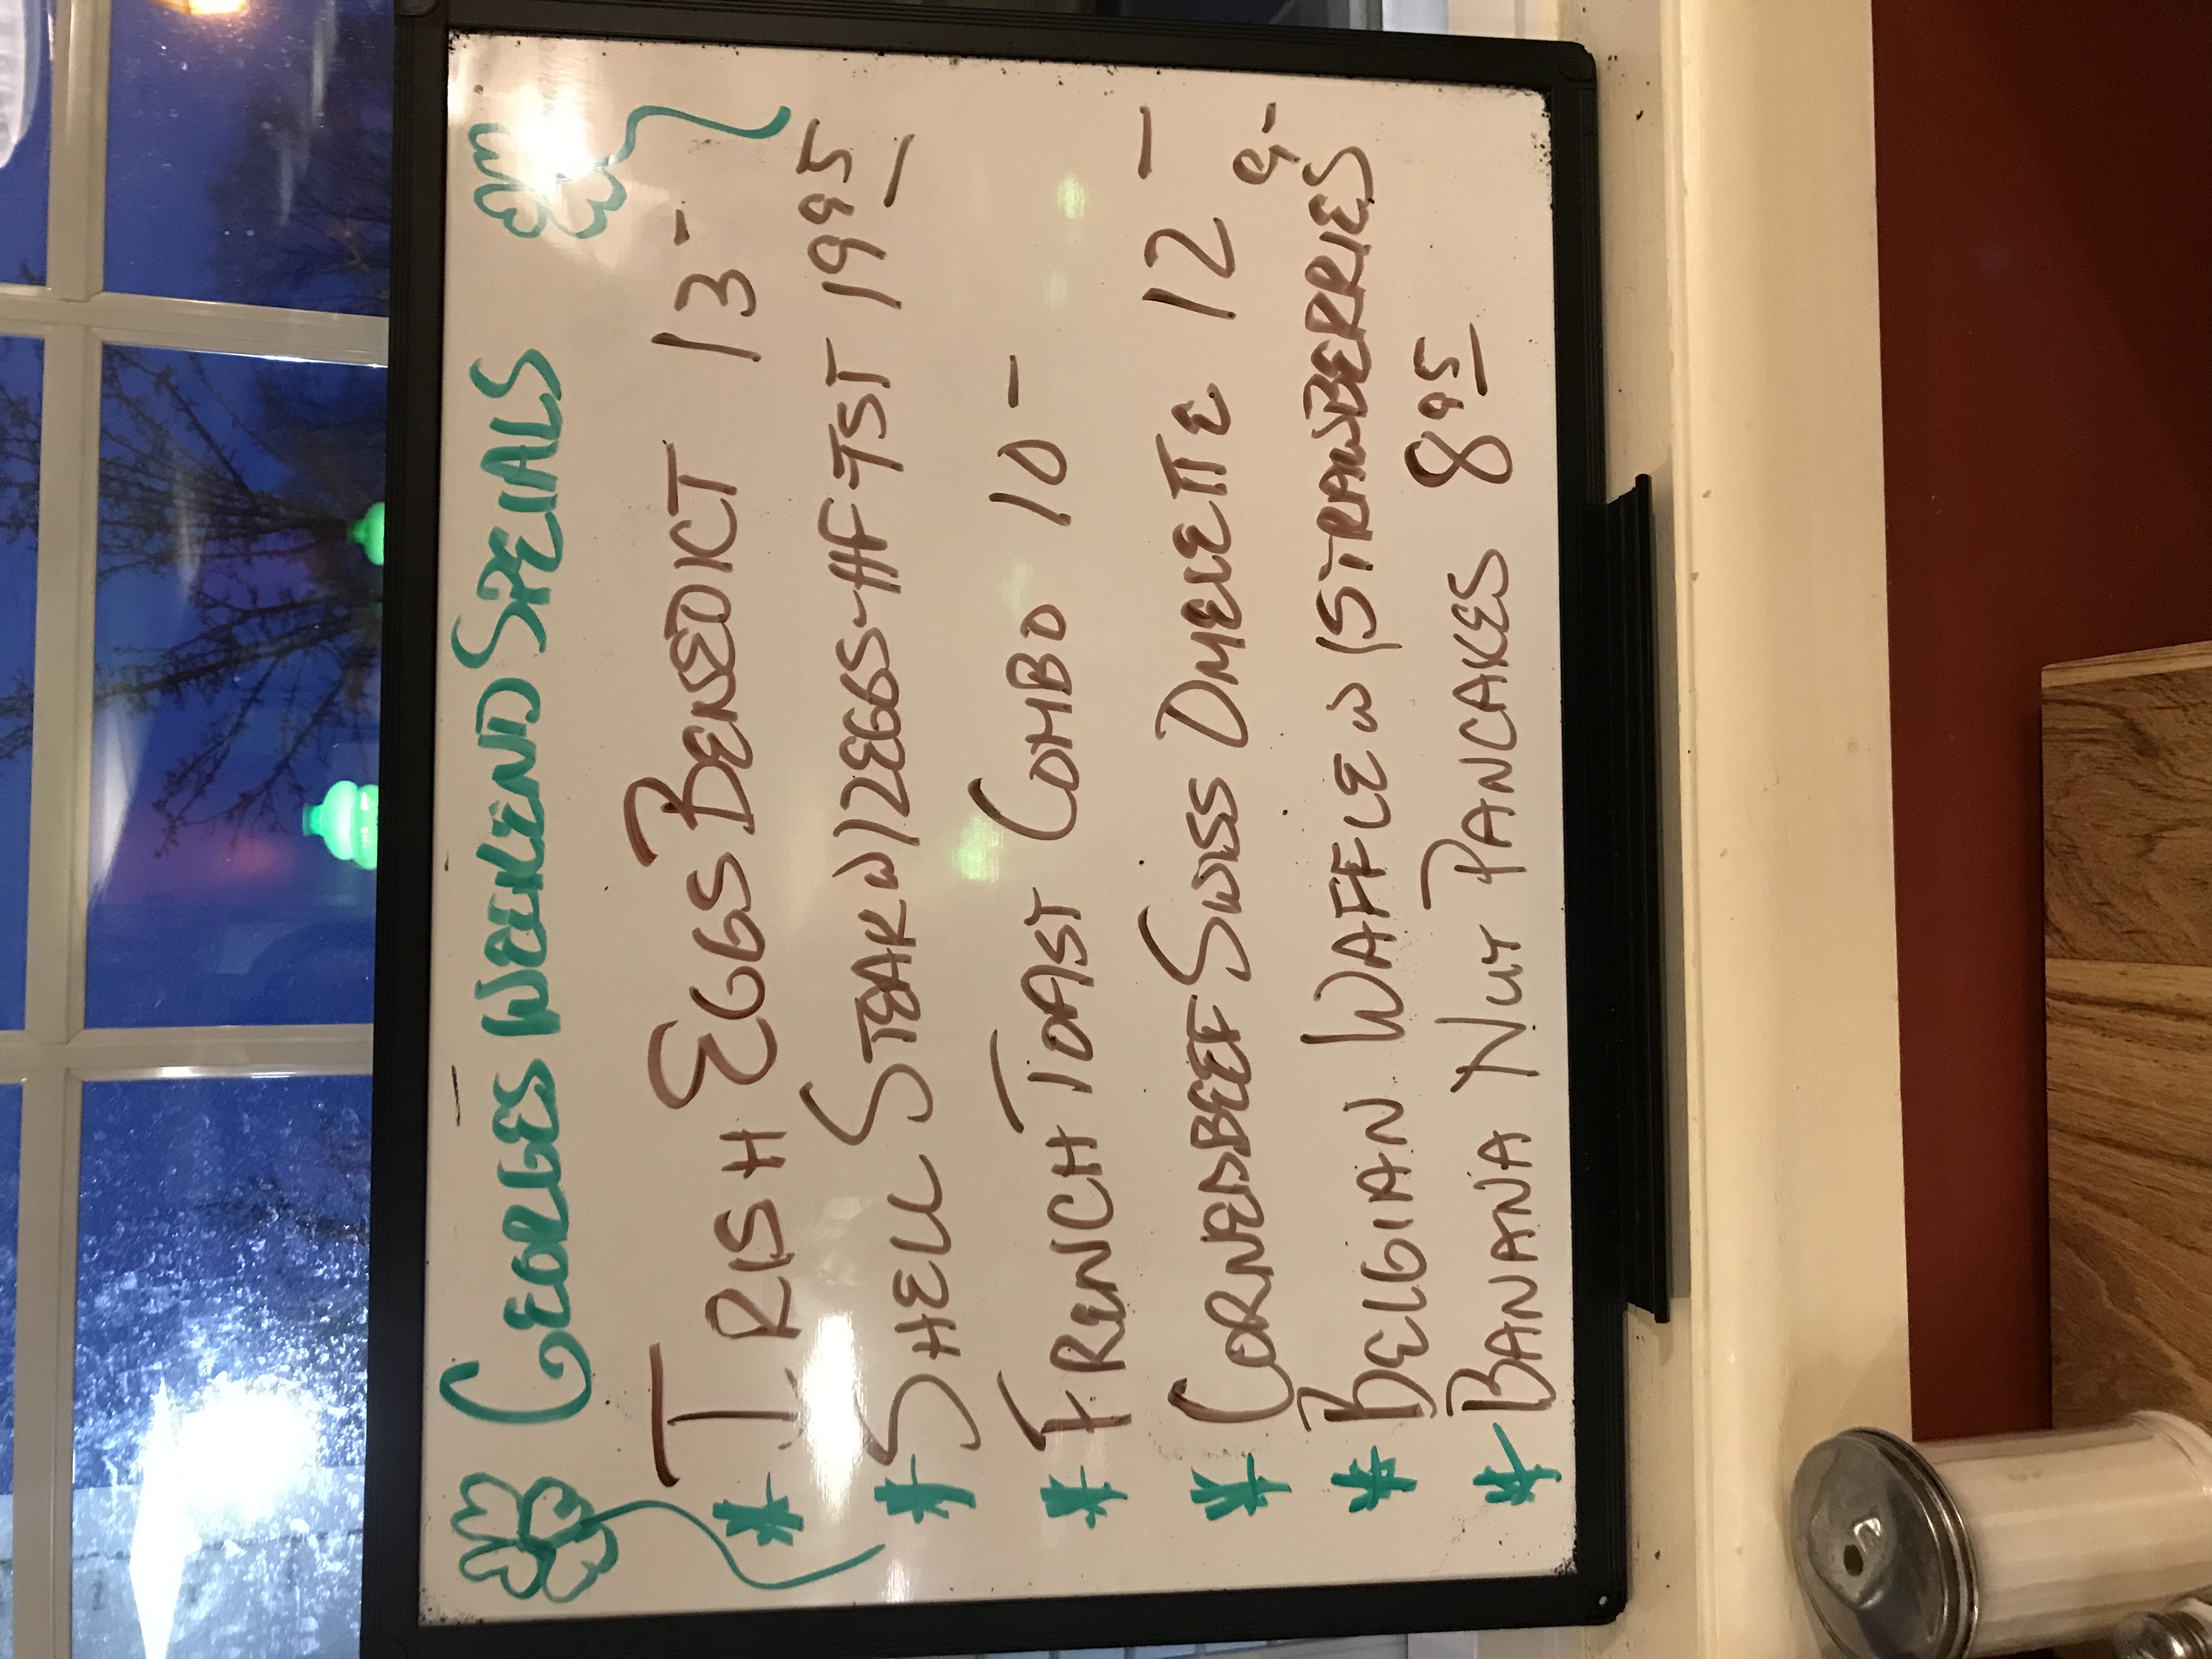 GEORGES WEEKEND SPEIALS
* IRISH EGGS BENEDICT 13-
* SHELL STEAK W/2EGGS-HF-TST 1995
* FRENCH TOAST COMBO 10-
* CORNEDBEEF SWISS OMELETTE 12-
* BELGIAN WAFFLE W/STRAWBERRIES 9-
* BANANA NUT PANCAKES 895